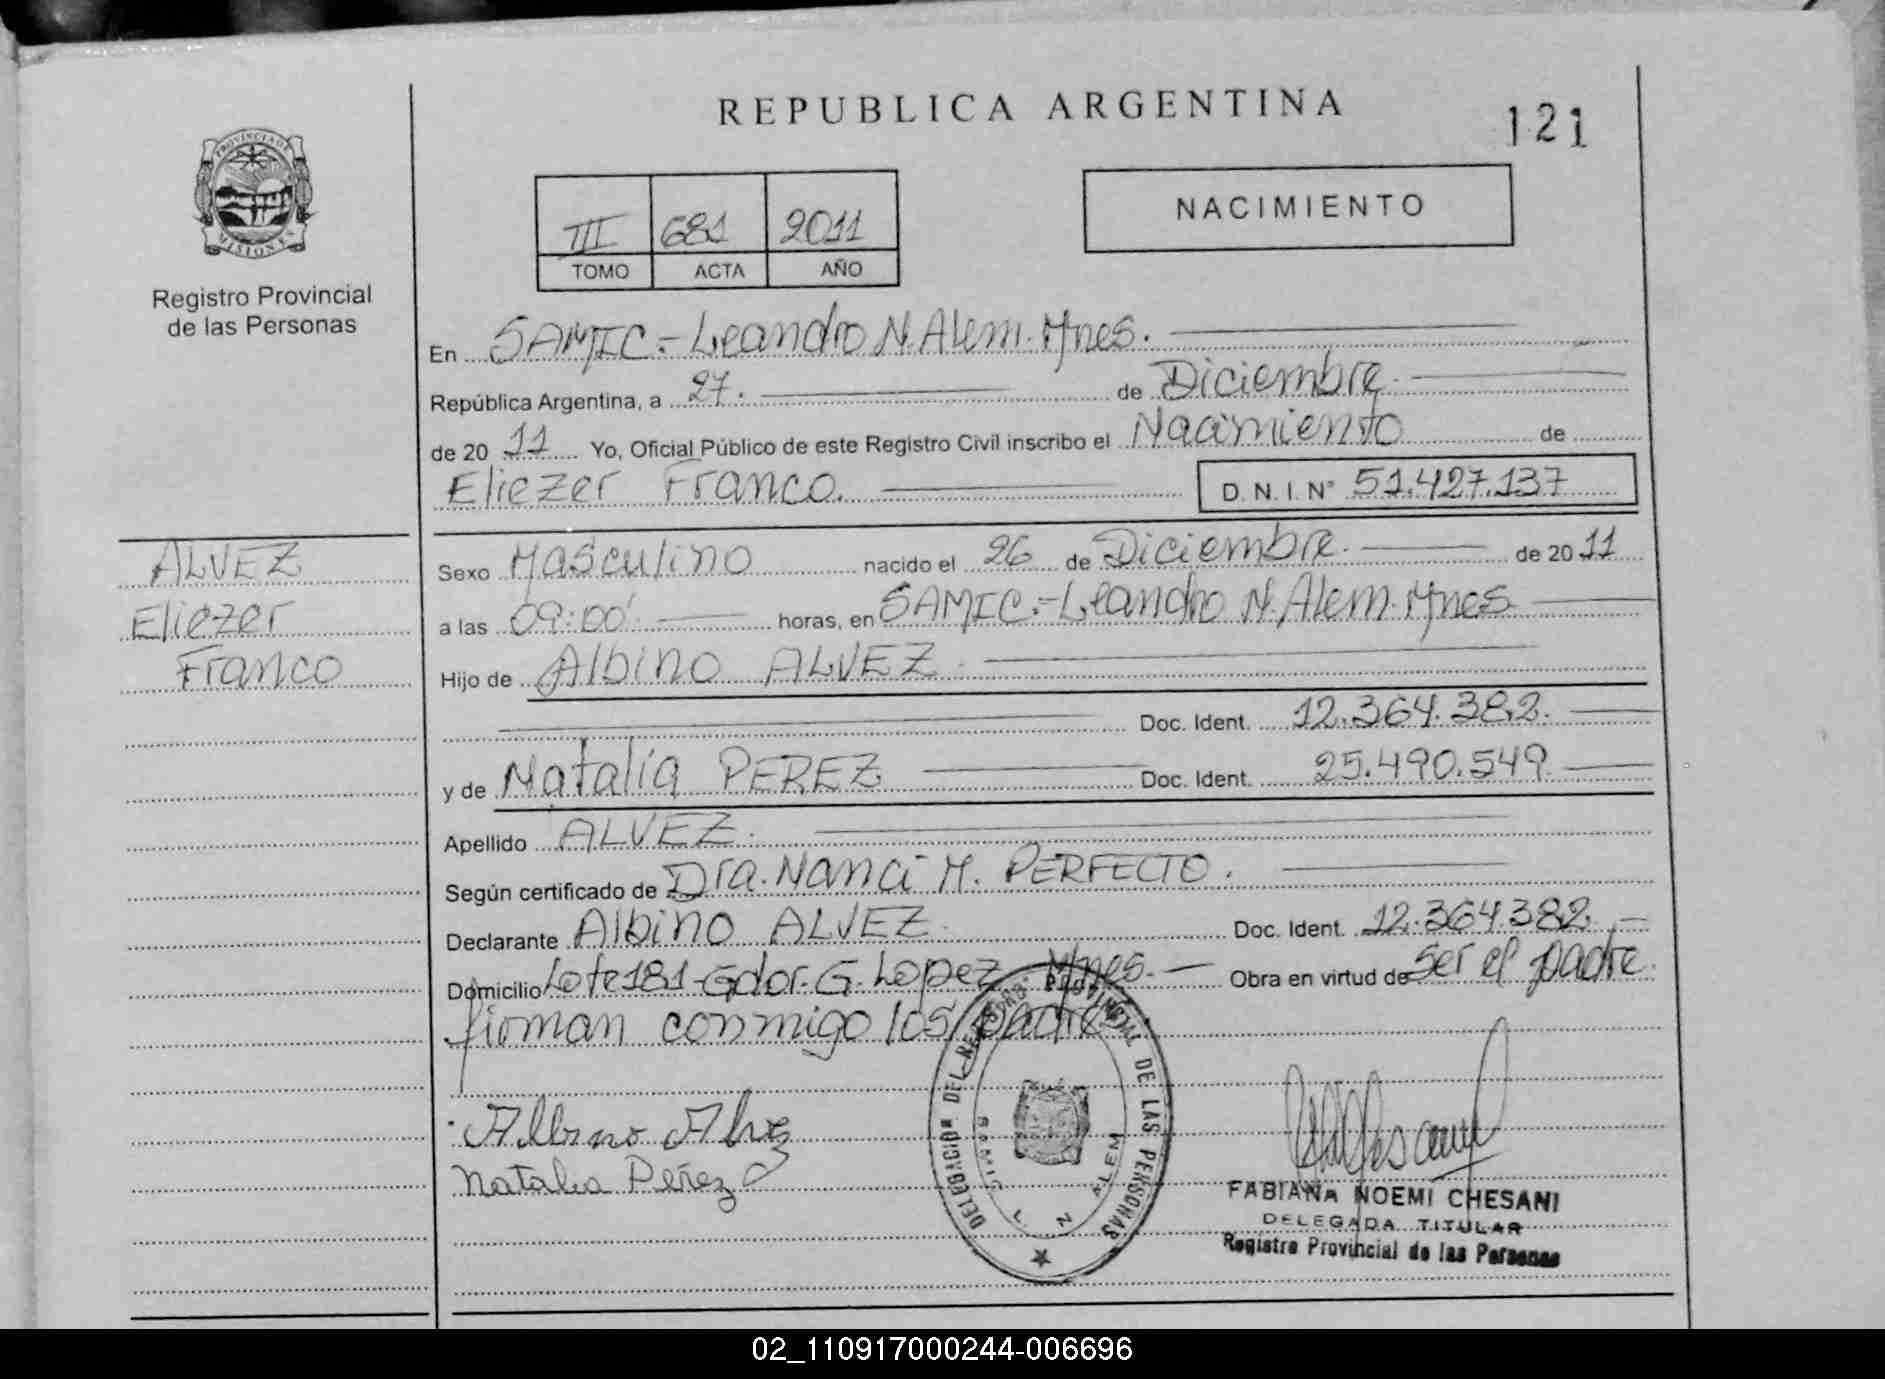 REPUBLICA ARGENTINA
121
PROVINCIA DE
MISIONES
Registro Provincial
de las Personas
III 681 2011
TOMO ACTA AÑO
NACIMIENTO
En SAMIC.- Leandro N. Alem. Mnes.
República Argentina, a 27. de Diciembre.
de 20 11 Yo, Oficial Público de este Registro Civil inscribo el Nacimiento de
Eliezer Franco. D. N. I. N° 51.427.137
ALVEZ
Eliezer
Franco
Sexo Masculino nacido el 26 de Diciembre. de 20 11
a las 09:00' horas, en SAMIC.- Leandro N. Alem. Mnes
Hijo de Albino ALVEZ.
Doc. Ident. 12.364.382.
y de Natalia PEREZ Doc. Ident. 25.490.549
Apellido ALVEZ.
Según certificado de Dra. Nanci M. PERFECTO.
Declarante Albino ALVEZ. Doc. Ident. 12.364.382
Domicilio Lote 181 - Gdor. G. Lopez Mnes. - Obra en virtud de ser el padre.
firman conmigo los padres
Albino Alvez
Natalia Perez
DELEGACION DEL REGISTRO PROVINCIAL DE LAS PERSONAS
SAMIC L N ALEM
FABIANA NOEMI CHESANI
DELEGADA TITULAR
Registro Provincial de las Personas
02_110917000244-006696